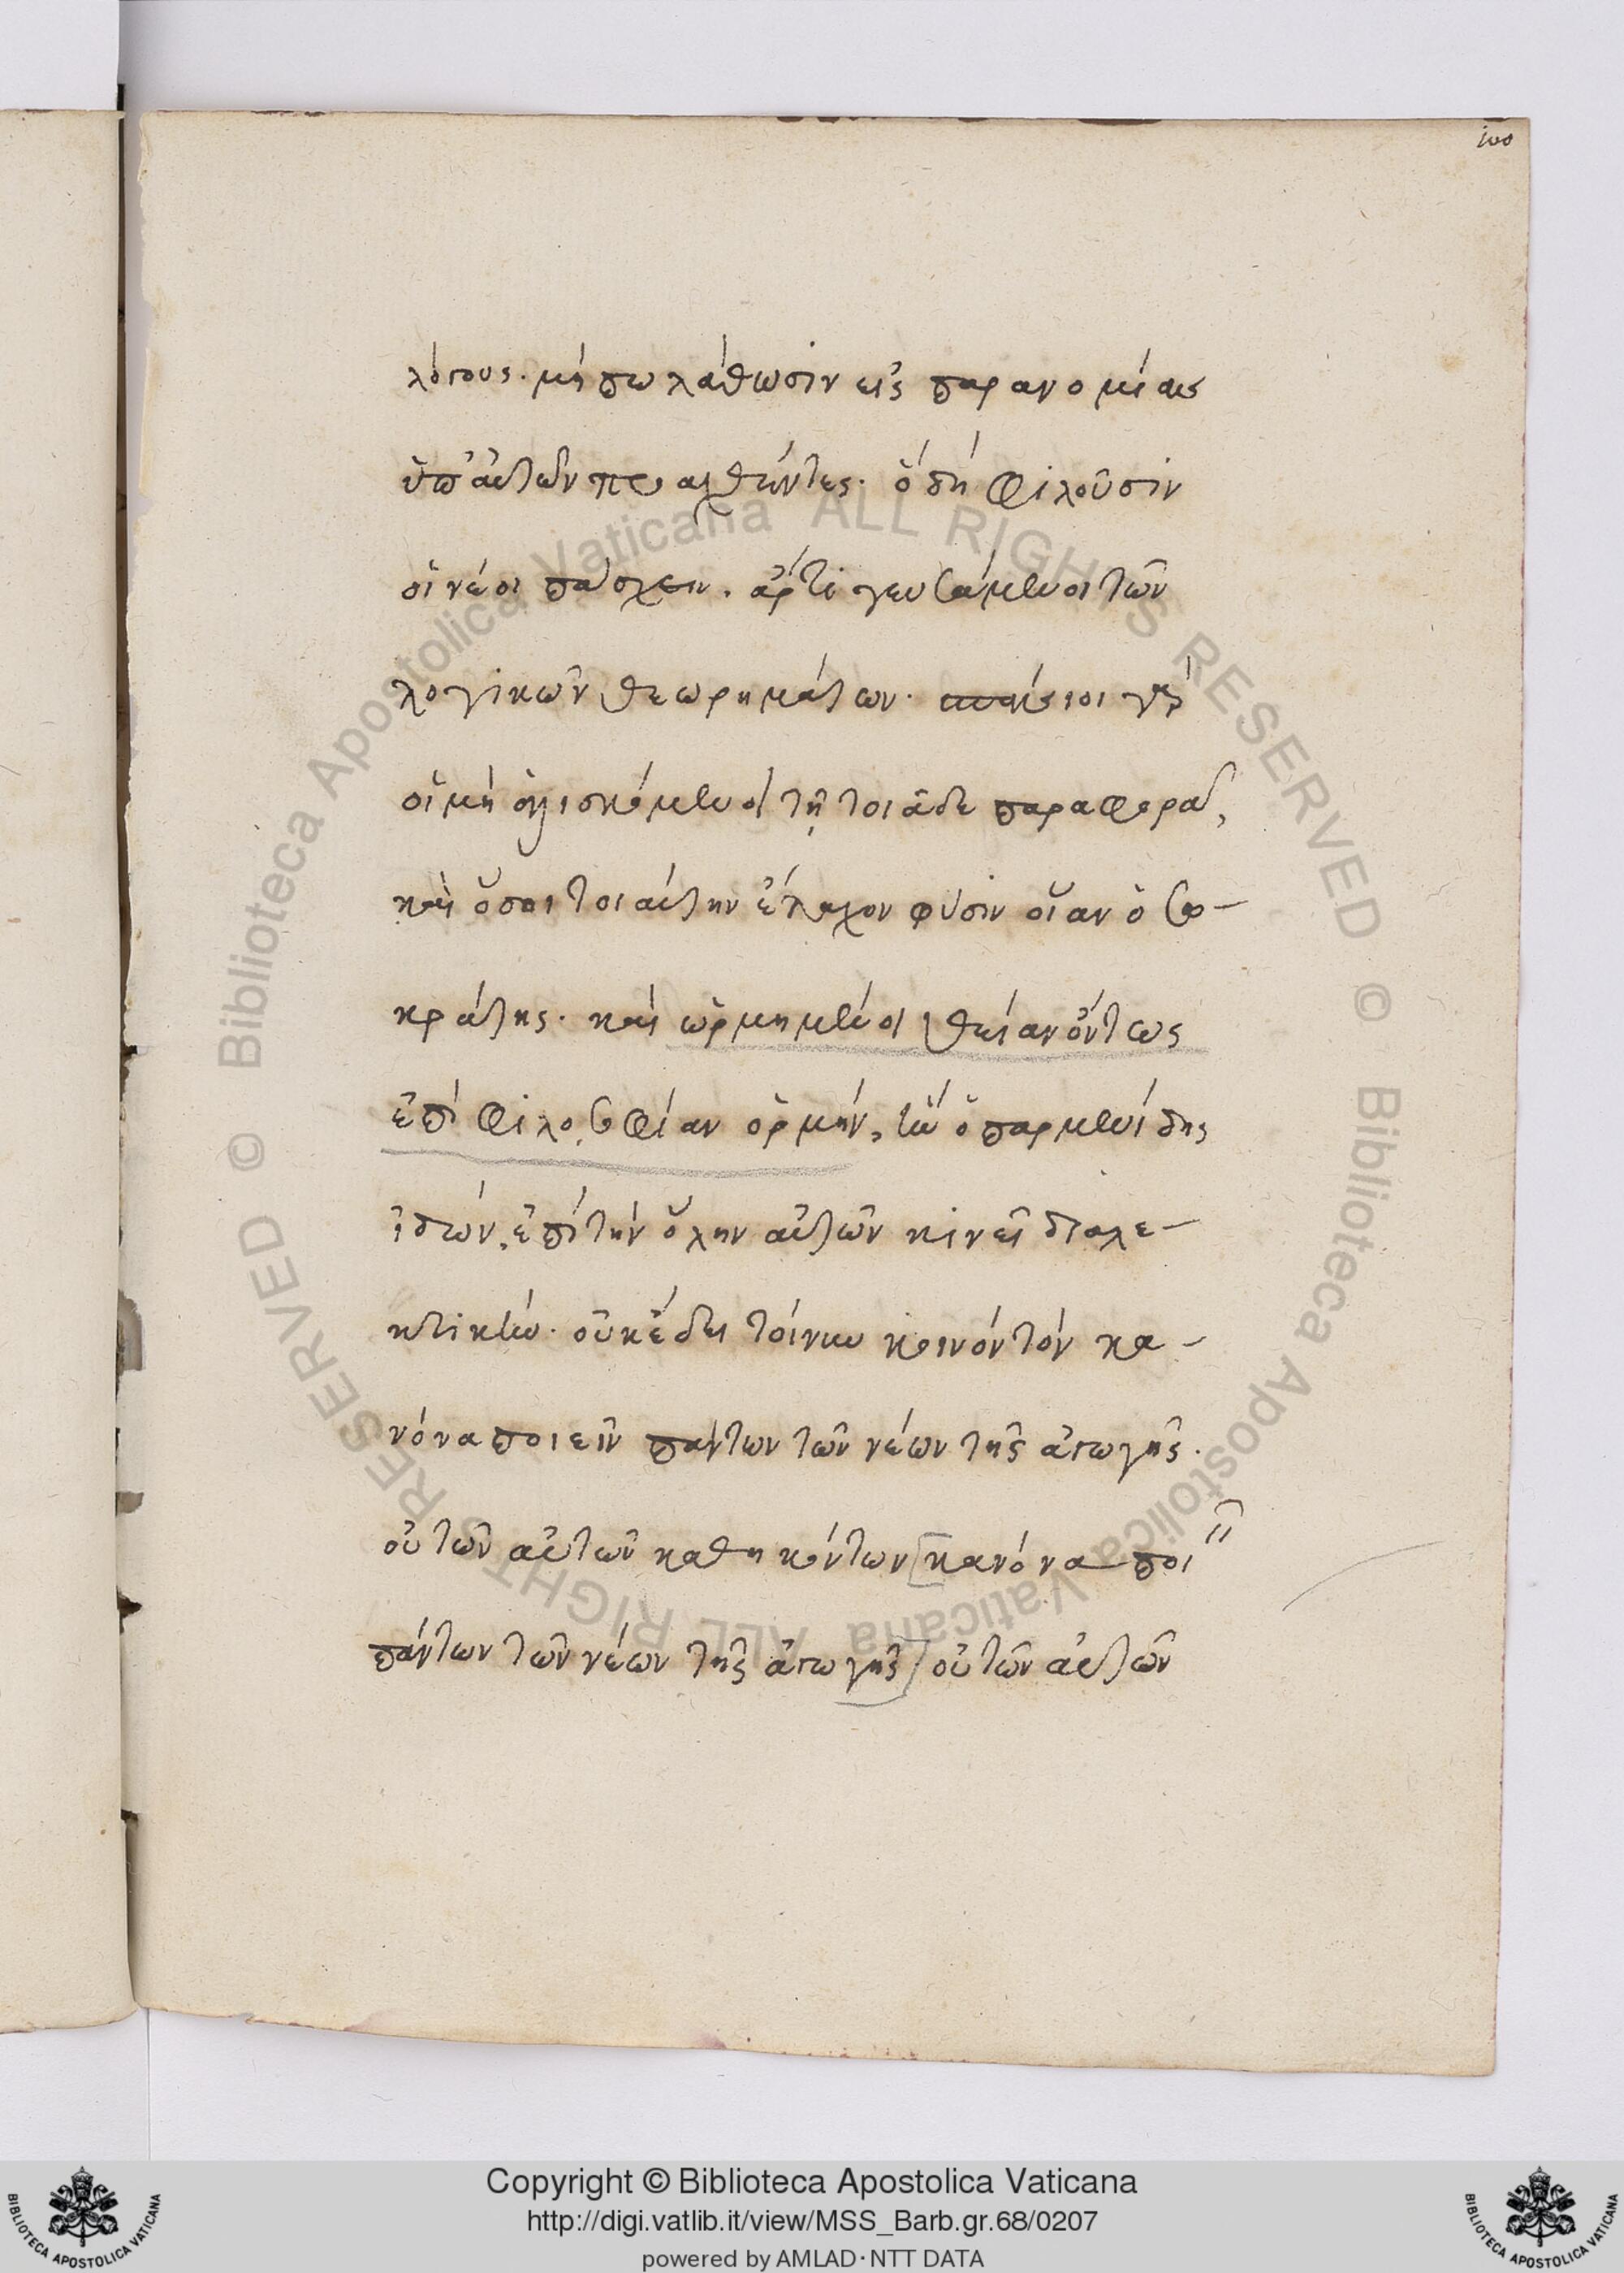 100
λόγους· μήπω λάθωσιν εἰς παρανομίας
ὑπ' αὐτῶν προαχθέντες· ὃ δὴ φιλοῦσιν
οἱ νέοι πάσχειν. ἄρτι γευσάμενοι τῶν
λογικῶν θεωρημάτων· σπάνιοι γὰρ
οἱ μὴ ἁλισκόμενοι τῇ τοιᾷδε παραφορᾷ,
καὶ ὅσοι τοιαύτην ἔλαχον φύσιν οἵαν ὁ Σω-
κράτης· καὶ ὡρμημένοι θείαν ὄντως
ἐπὶ φιλοσοφίαν ὁρμήν, ἣν ὁ παρμενίδης
ἰδών, ἐπὶ τὴν ὅλην αὐτῶν κινεῖ διαλε-
κτικήν· οὐκ ἔδει τοίνυν κοινὸν τὸν κα-
νόνα ποιεῖν πάντων τῶν νέων τῆς ἀγωγῆς·
οὐ τῶν αὐτῶν καθηκόντων [κανόνα ποιεῖν
πάντων τῶν νέων τῆς ἀγωγῆς] οὐ τῶν αὐτῶν
© Biblioteca Apostolica Vaticana ALL RIGHTS RESERVED © Biblioteca Apostolica Vaticana ALL RIGHTS RESERVED
Copyright © Biblioteca Apostolica Vaticana
http://digi.vatlib.it/view/MSS_Barb.gr.68/0207
powered by AMLAD·NTT DATA
BIBLIOTECA APOSTOLICA VATICANA
BIBLIOTECA APOSTOLICA VATICANA